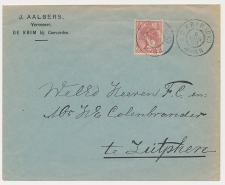 J. AALBERS,
Veenboer.
DE KRIM bij Coevorden.
Weled Heeren F.C. en
Mr H.E. Colenbrander
te Zutphen